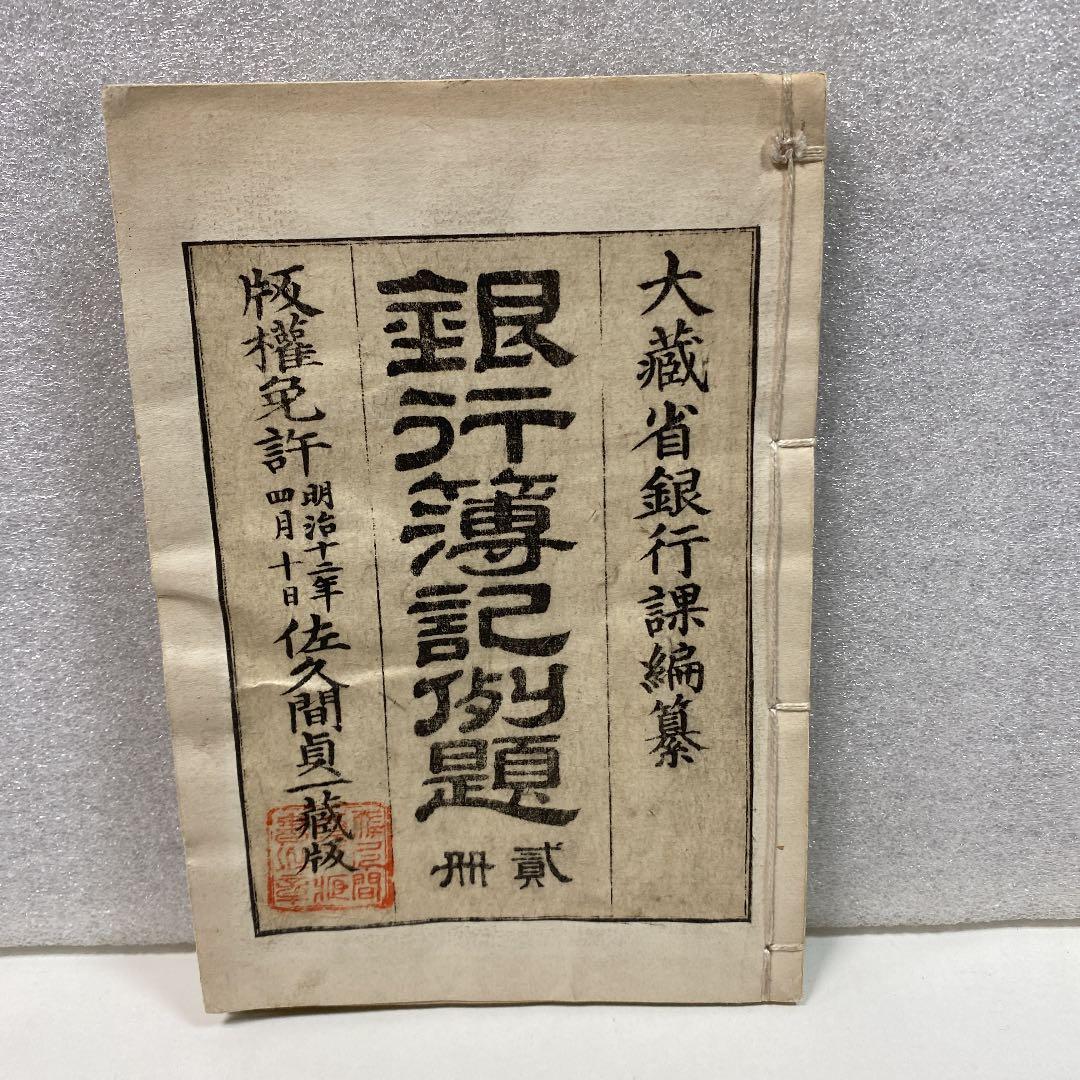 大藏省銀行課編纂
銀行簿記例題
貳冊
版權免許
明治十二年
四月十日
佐久間貞一藏版